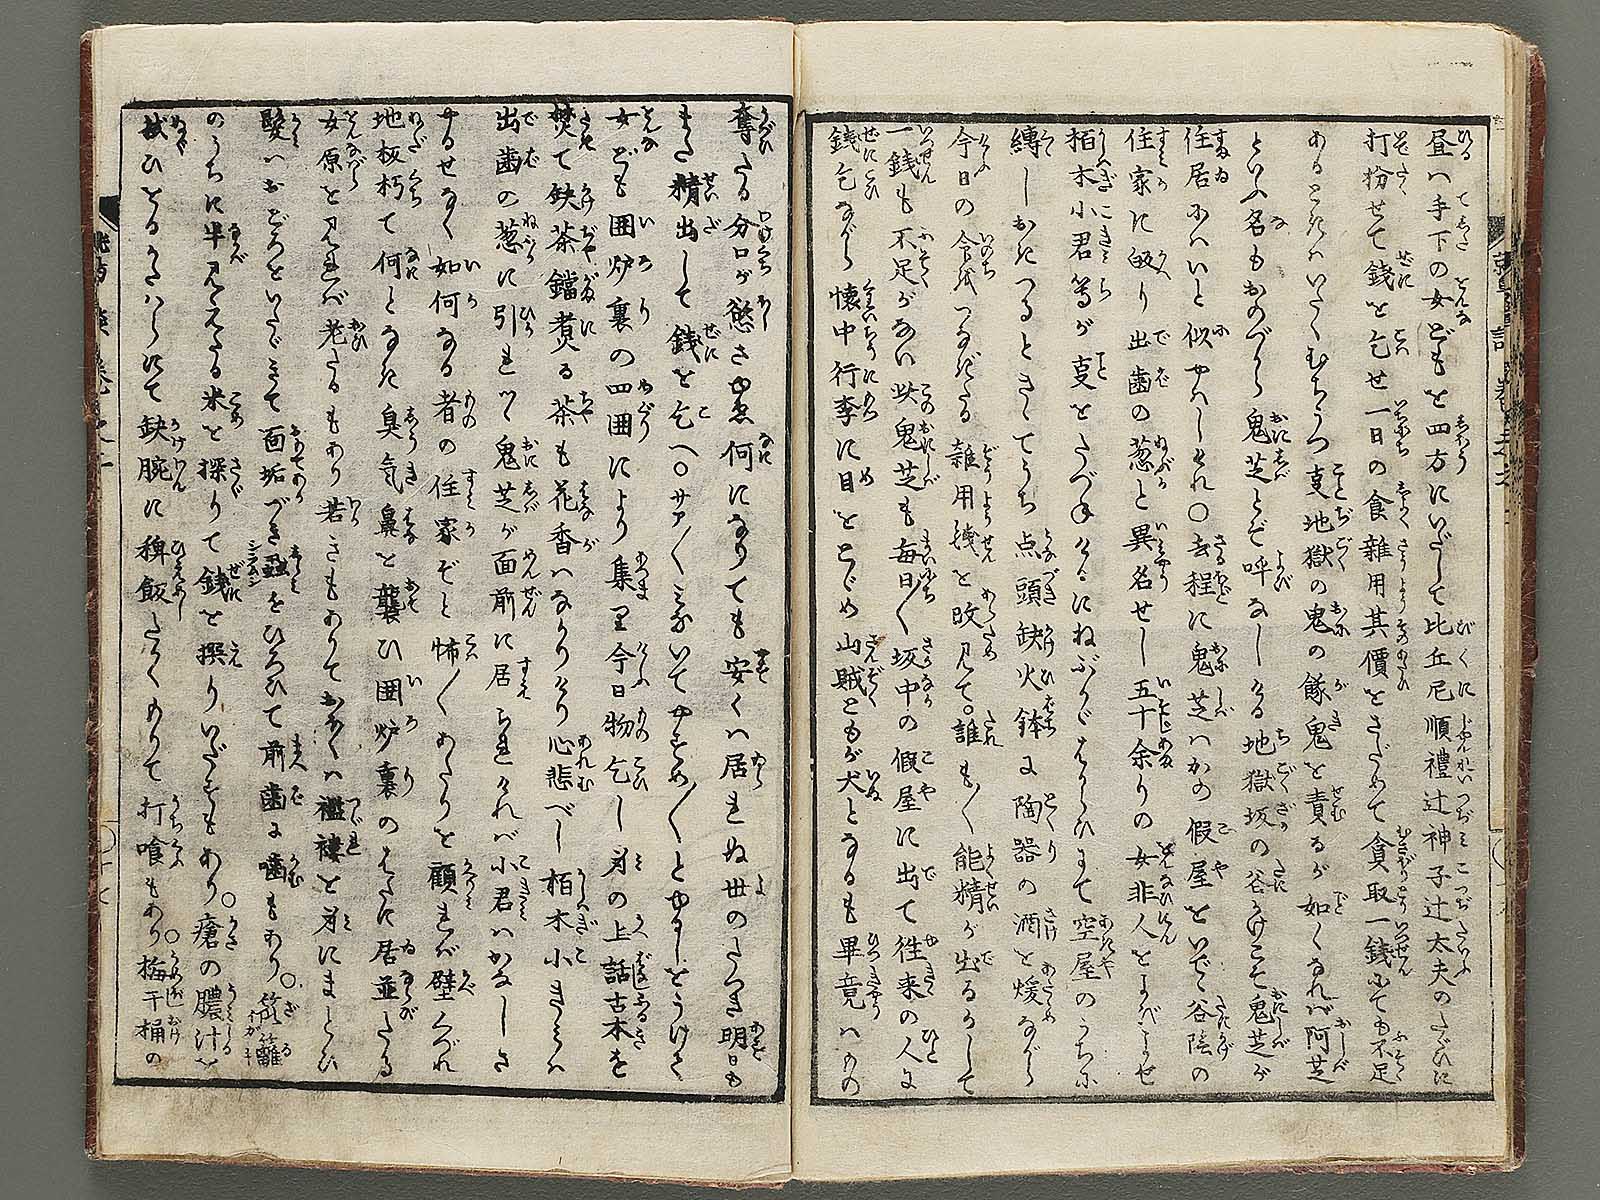 昼ハ手下の女どもを四方にいだして比丘尼順禮辻神子辻太夫のたぐひに
打扮せて銭を乞せ一日の食雜用其價をさだめて貪取一銭にても不足
あるときハいたくむちうつ事地獄の鬼の餓鬼を責るが如くなれバ阿芝
といふ名もおのづから鬼芝とぞ呼なしける地獄坂の谷かげこそ鬼芝が
住居にハいと似やハしけれ○去程に鬼芝ハかの假屋をいで谷陰の
住家に皈り出歯の葱と異名せし五十余りの女非人をよびよせ
栢木小君等が事をたづねけるにねぶりがちにて空屋のうちに
縛しおきつるときゝてうち点頭缺火鉢に陶器の酒を煖ながら
今日の命をつなぎたる雜用銭を改見て○誰も/\能精が出るかして
一銭も不足がない此鬼芝も毎日/\坂中の假屋に出て往来の人に
銭乞ながら懐中行李に目をとゞめ山賊ともが犬となるも畢竟ハかの
奪たる分口が慾さゆゑ何になりても安くハ居られぬ世のたつき明日も
また精出して銭を乞へ○サア/\みないてやすめ/\とゆるしをうけて
女ども囲炉裏の四囲により集り今日物乞し身の上話古木を
焚て缺茶鐺煮る茶も花香ハなかりけり心悲べし栢木小きみハ
出歯の葱に引れつゝ鬼芝が面前に居られけれバ小君ハかなしさ
やるせなく如何なる者の住家ぞと怖/\あたりを顧れバ壁くづれ
地板朽て何となき臭気鼻を襲ひ囲炉裏のはたに居並たる
女原を見れバ老たるもあり若きもありておなく襤褸を身にまとひ
髪ハおどろをいたゞきて面垢づき虱をひろひて前歯に噛もあり○笊籬
のうちに半見えたる米を探りて銭を撰りいだすもあり○瘡の膿汁を
拭ひとるかたハらにて缺腕に稗飯たかくもりて打喰もあり○梅干桶の